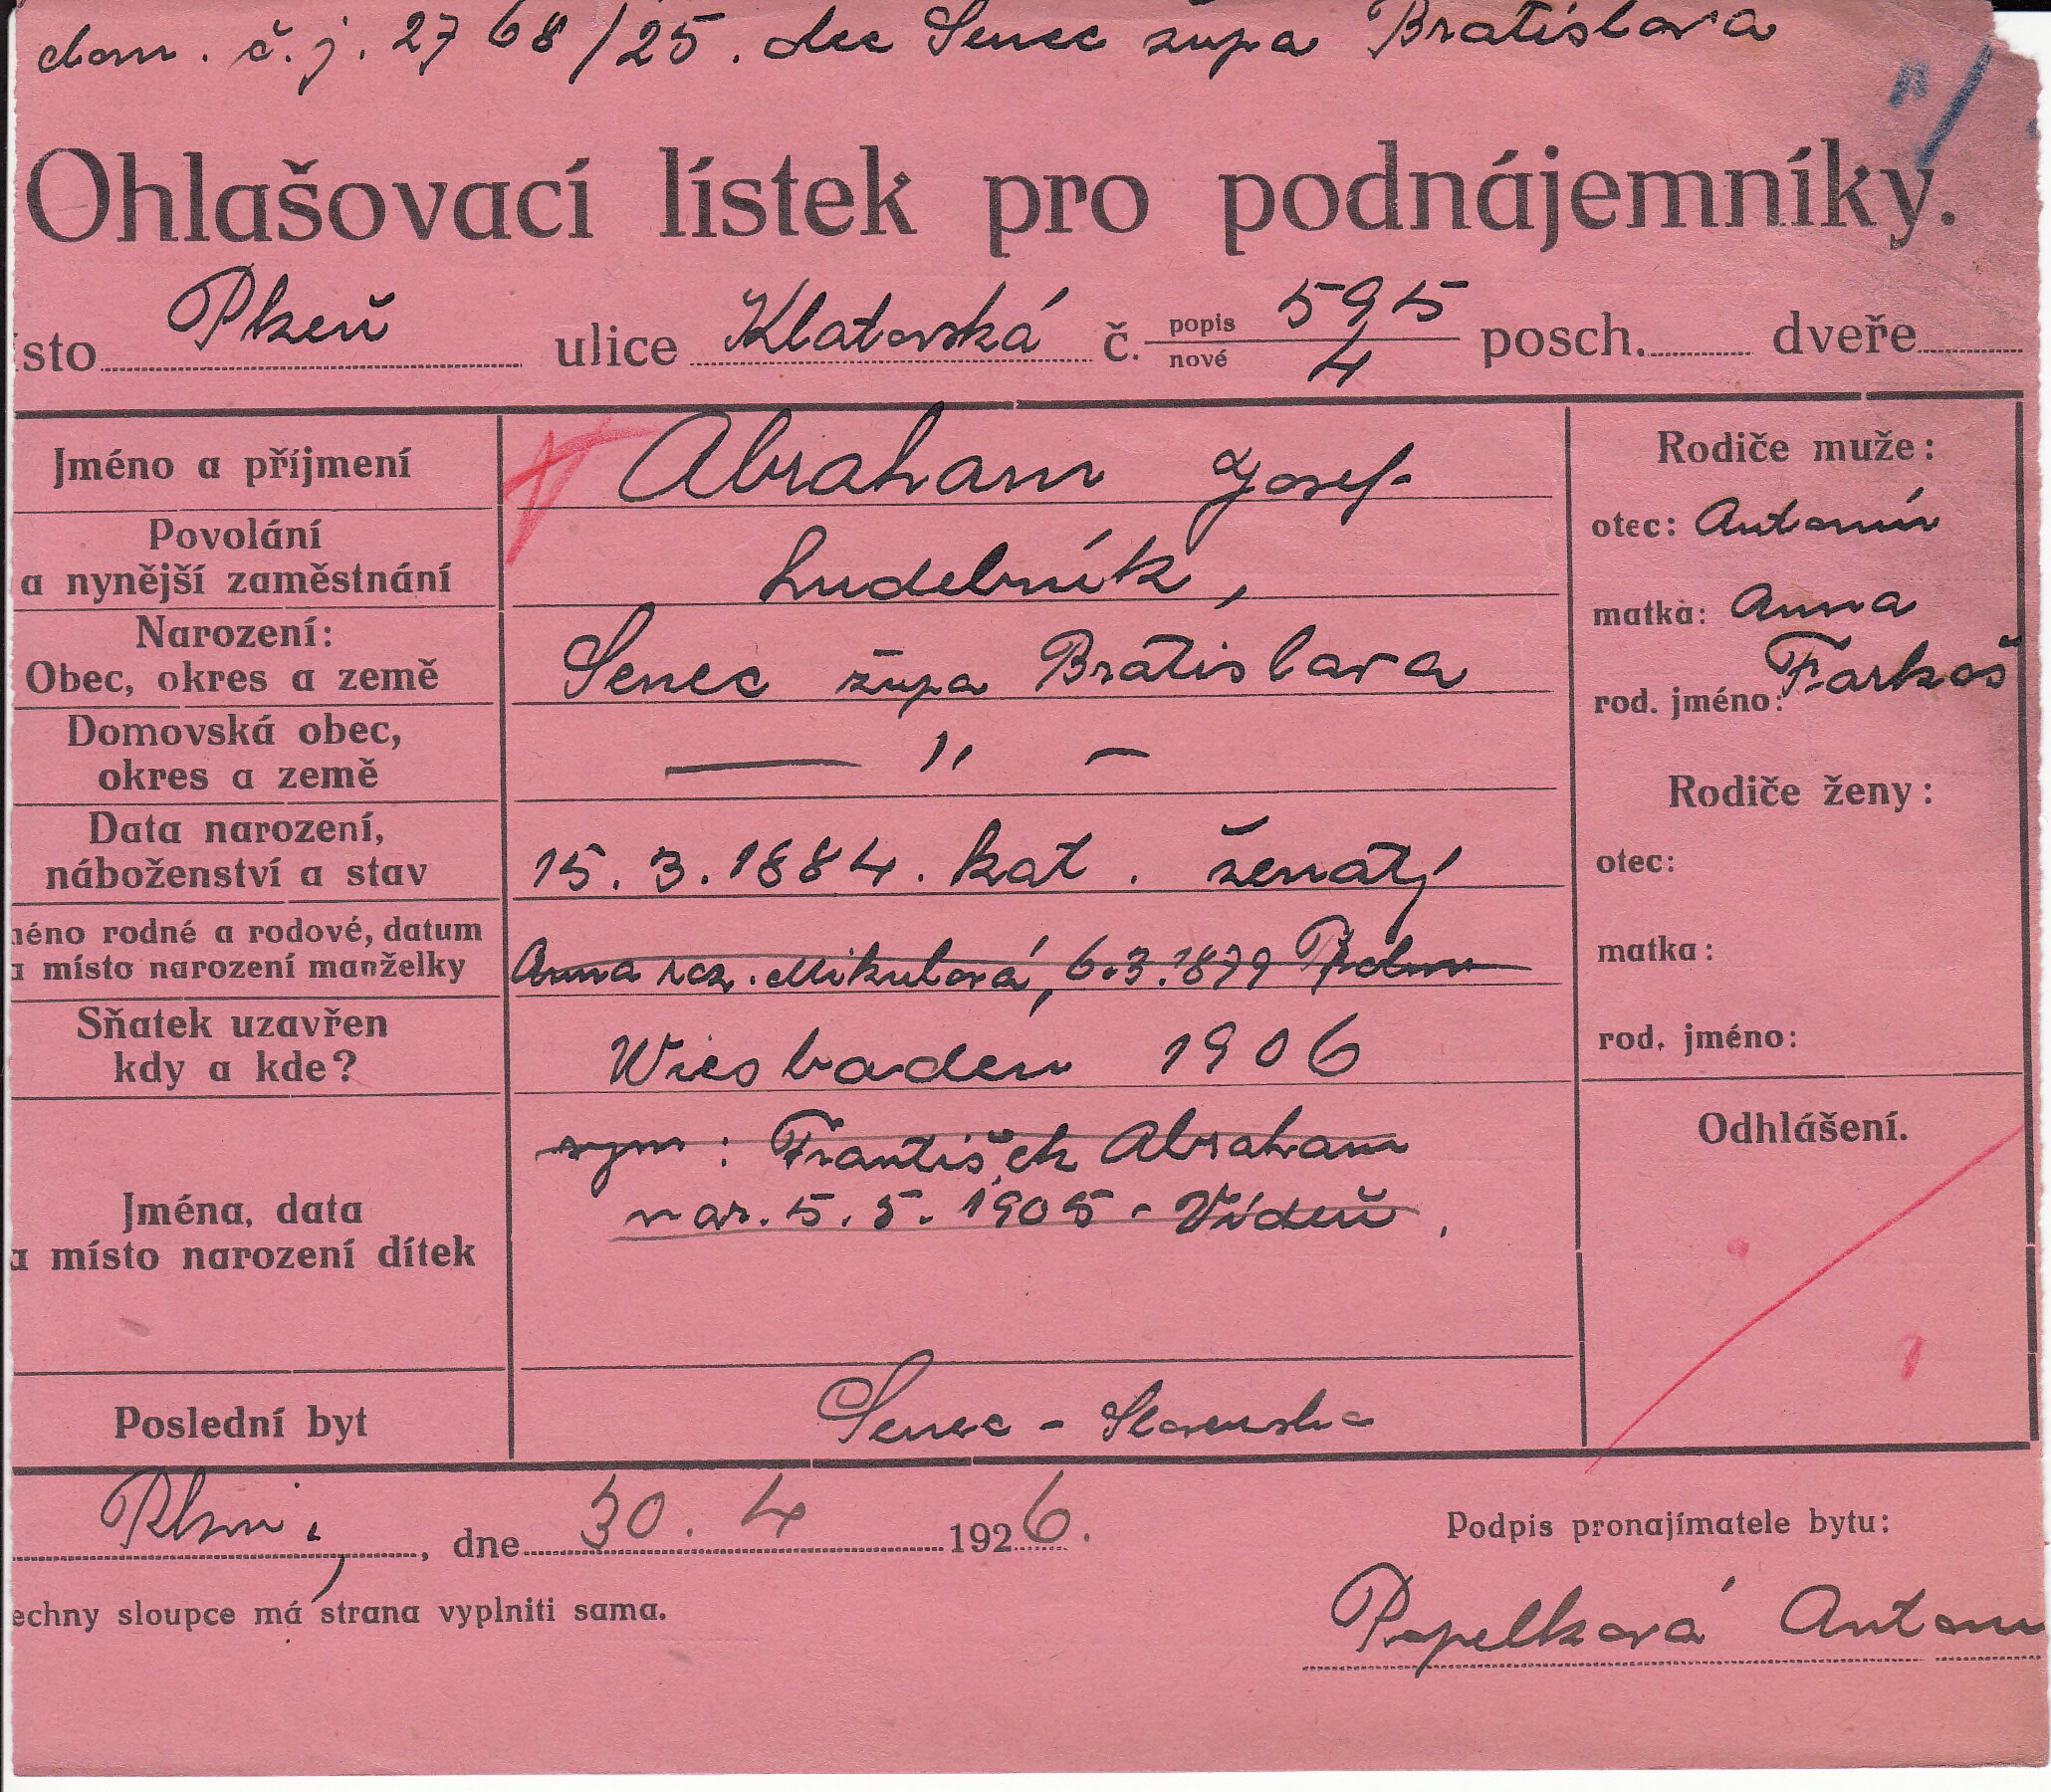 dom. č. j. 2768/25. Senec župa Bratislava
Ohlašovací lístek pro podnájemníky.
ísto Plzeň ulice Klatovská č. popis 595 nové 4 posch. dveře
Jméno a příjmení Abraham Josef
Povolání
a nynější zaměstnání hudebník,
Narození:
Obec, okres a země Senec župa Bratislava
Domovská obec,
okres a země — „ —
Data narození,
náboženství a stav 15. 3. 1884. kat. ženatý
méno rodné a rodové, datum
a místo narození manželky Anna roz. Mikulová, 6.3.1879
Sňatek uzavřen
kdy a kde? Wiesbaden 1906
Jména, data
a místo narození dítek syn: František Abraham
nar. 5. 5. 1905 - Vídeň.
Poslední byt Senec - Slovensko
Rodiče muže:
otec: Antonín
matka: Anna
rod. jméno: Farkaš
Rodiče ženy:
otec:
matka:
rod. jméno:
Odhlášení.
Plzni, dne 30. 4 1926.
Podpis pronajímatele bytu:
echny sloupce má strana vyplniti sama.
Popelková Anton